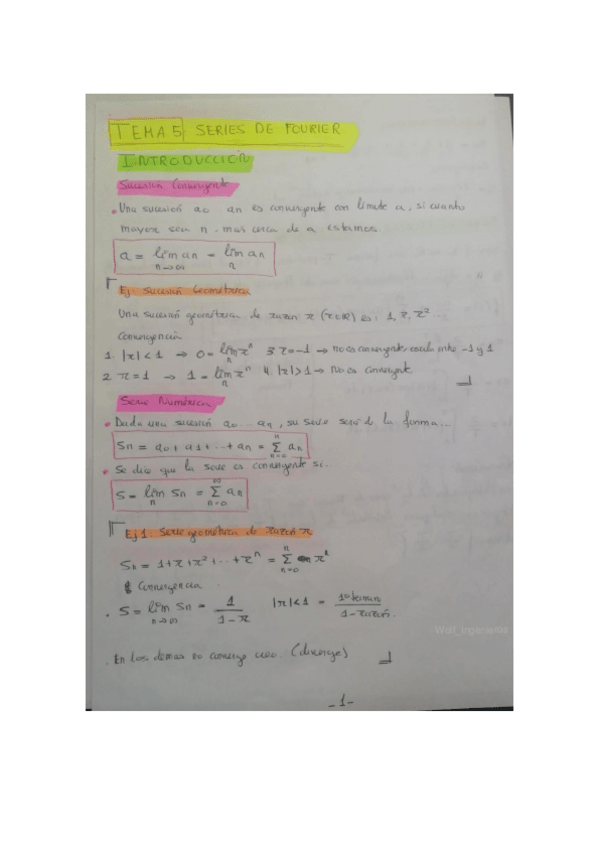 TEMA 5 SERIES DE FOURIER
INTRODUCCIÓN
Sucesión Convergente
• Una sucesión a0 ... an es convergente con límite a, si cuanto
mayor sea n, mas cerca de a estamos.
a = lim an = lim an
n→∞ n
Ej: Sucesión Geométrica
Una sucesión geométrica de razón r (r∈ℝ) es: 1, r, r²...
Convergencia
1. |r| < 1 → 0 = lim rⁿ 3. r = -1 → no es convergente oscila entre -1 y 1
n
2. r = 1 → 1 = lim rⁿ 4. |r| > 1 → No es convergente
n
Serie Numérica
• Dada una sucesión a0 ... an, su serie será de la forma...
Sn = a0 + a1 + ... + an = Σ an
n
n=0
• Se dice que la serie es convergente si...
S = lim Sn = Σ an
n ∞
n=0
Ej 1: Serie geométrica de razón r.
Sn = 1 + r + r² + ... + rⁿ = Σ
n
n=0
Convergencia
S = lim Sn = 1 / 1 - r |r| < 1 = 1º término / 1 - razón.
n→∞
En los demas no converge (diverge)
Wolf_Ingenieros
-1-